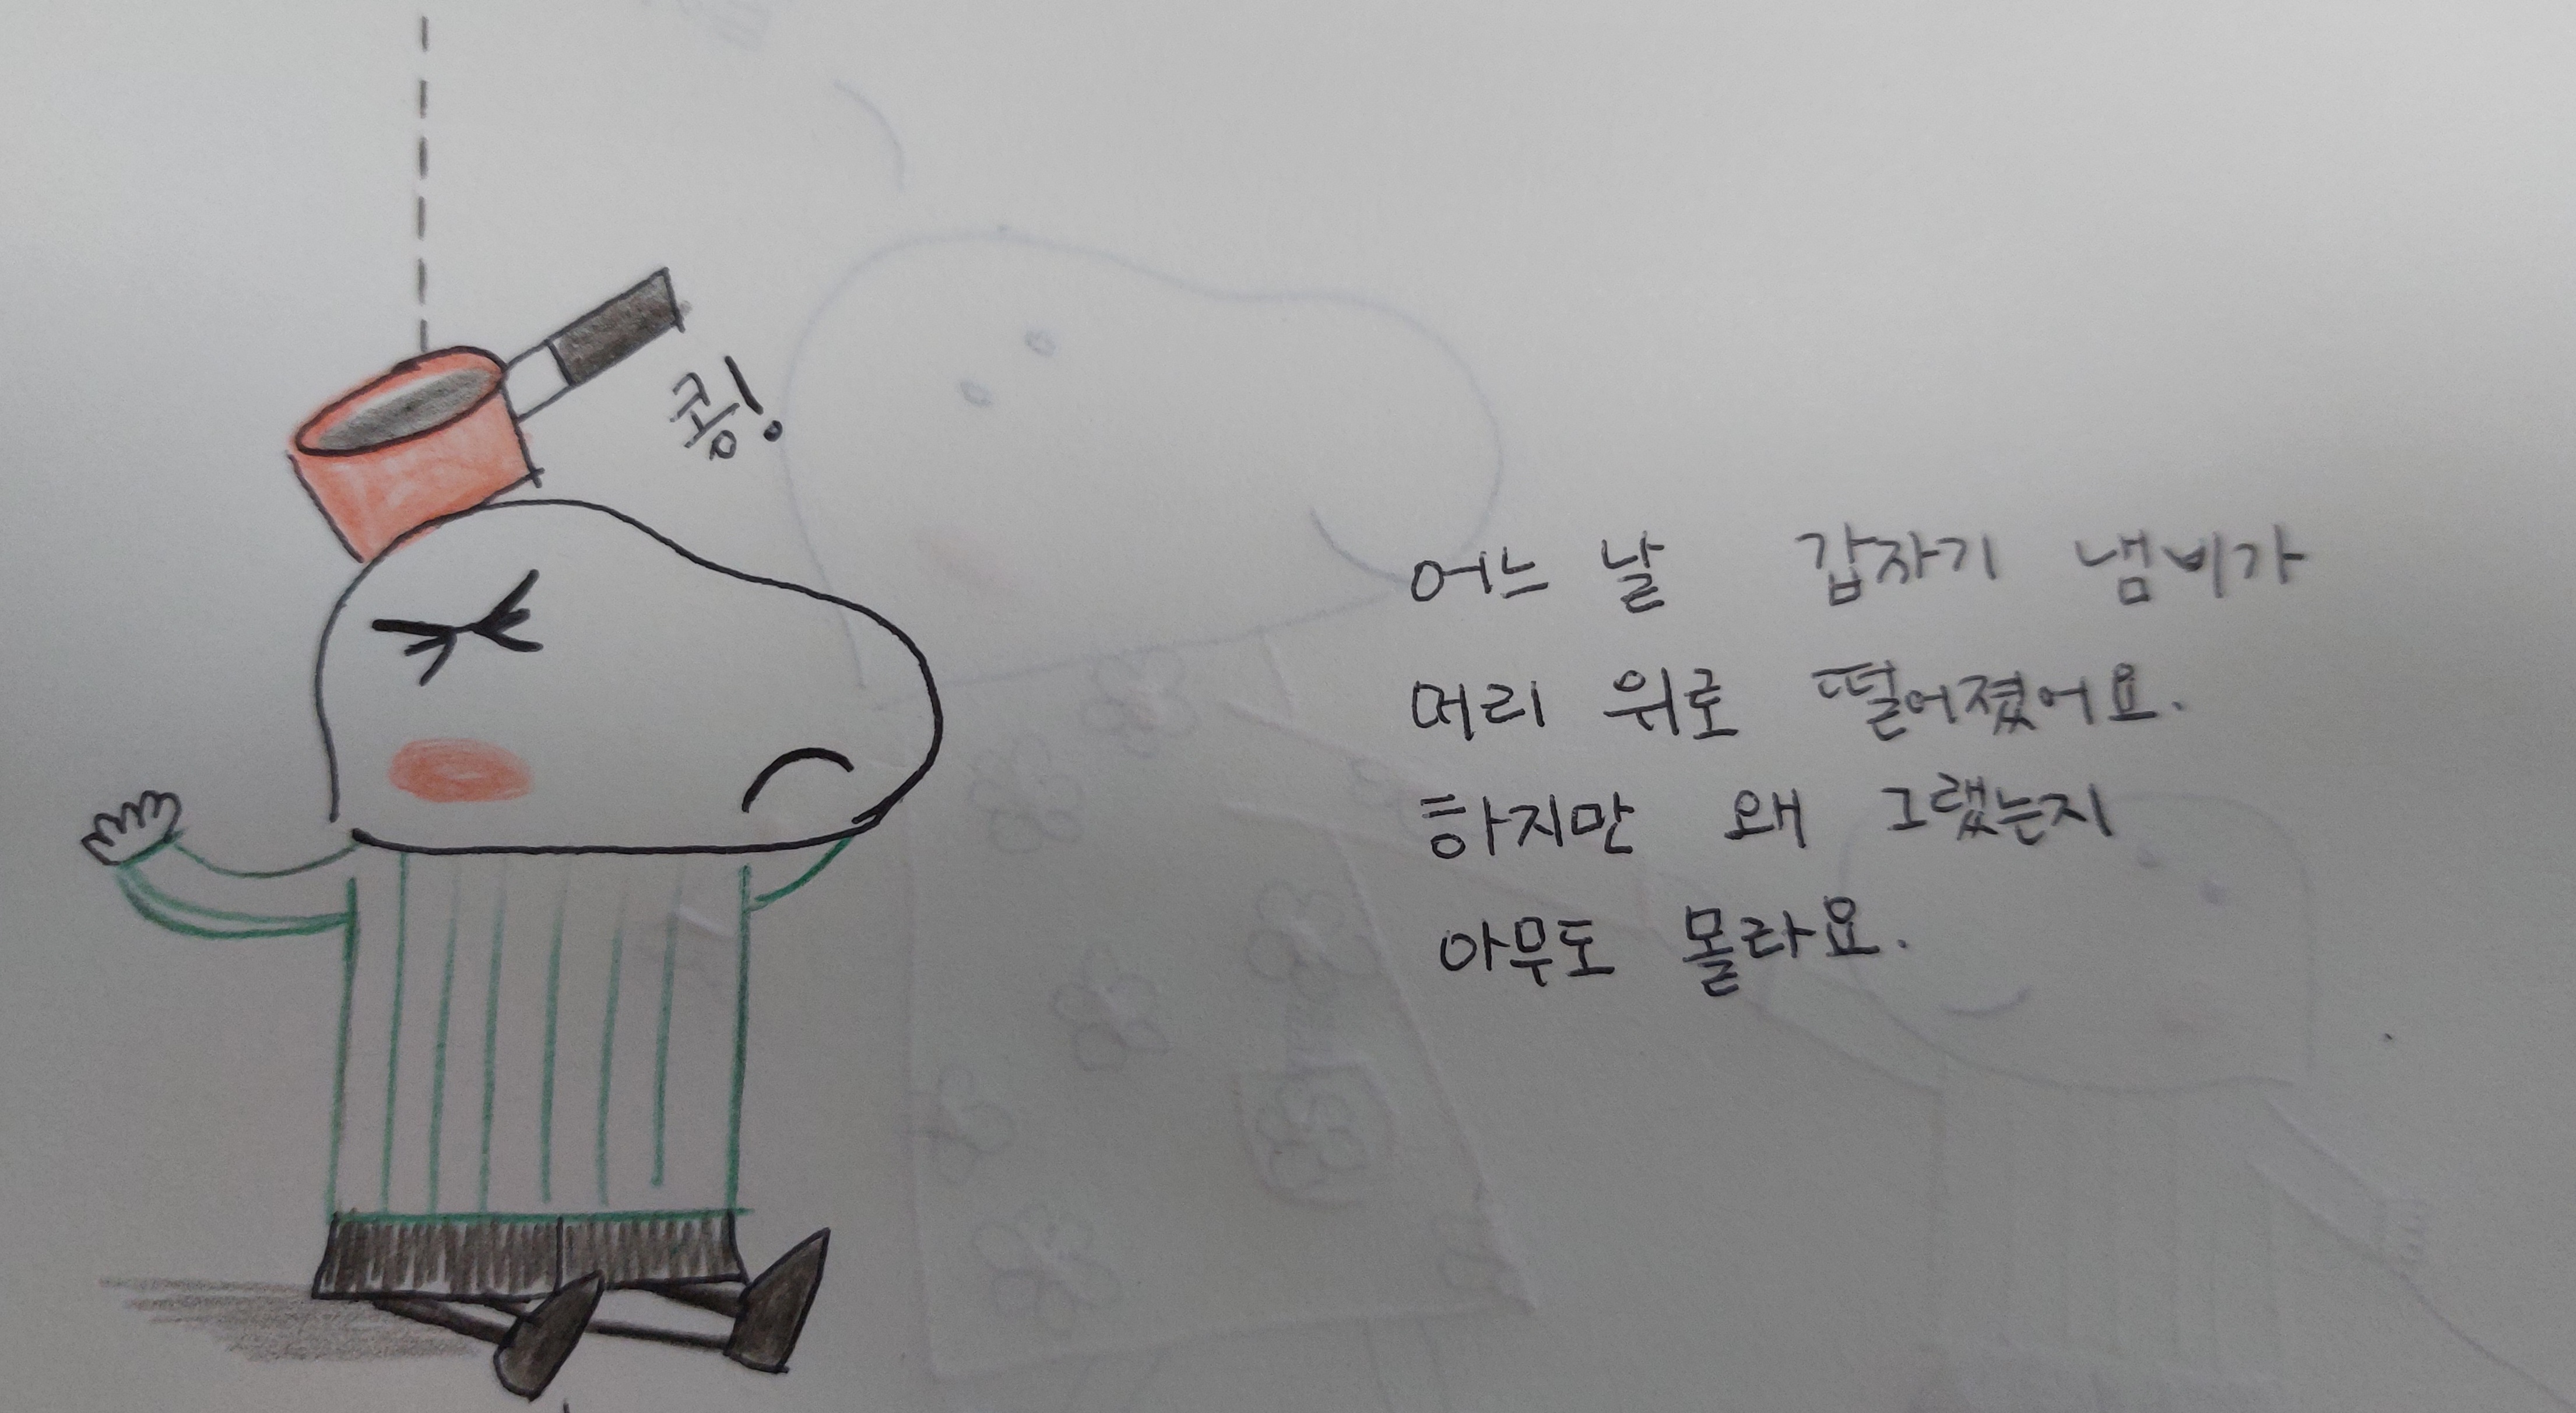 콩!
어느 날 갑자기 냄비가
머리 위로 떨어졌어요.
하지만 왜 그랬는지
아무도 몰라요.